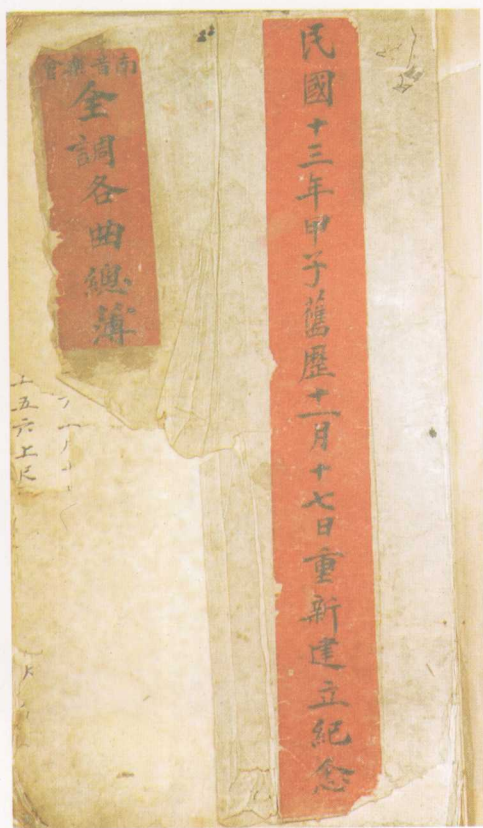 民國十三年甲子舊歷十一月十七日重新建立紀念
南音樂會
全調各曲總簿
上五六上尺